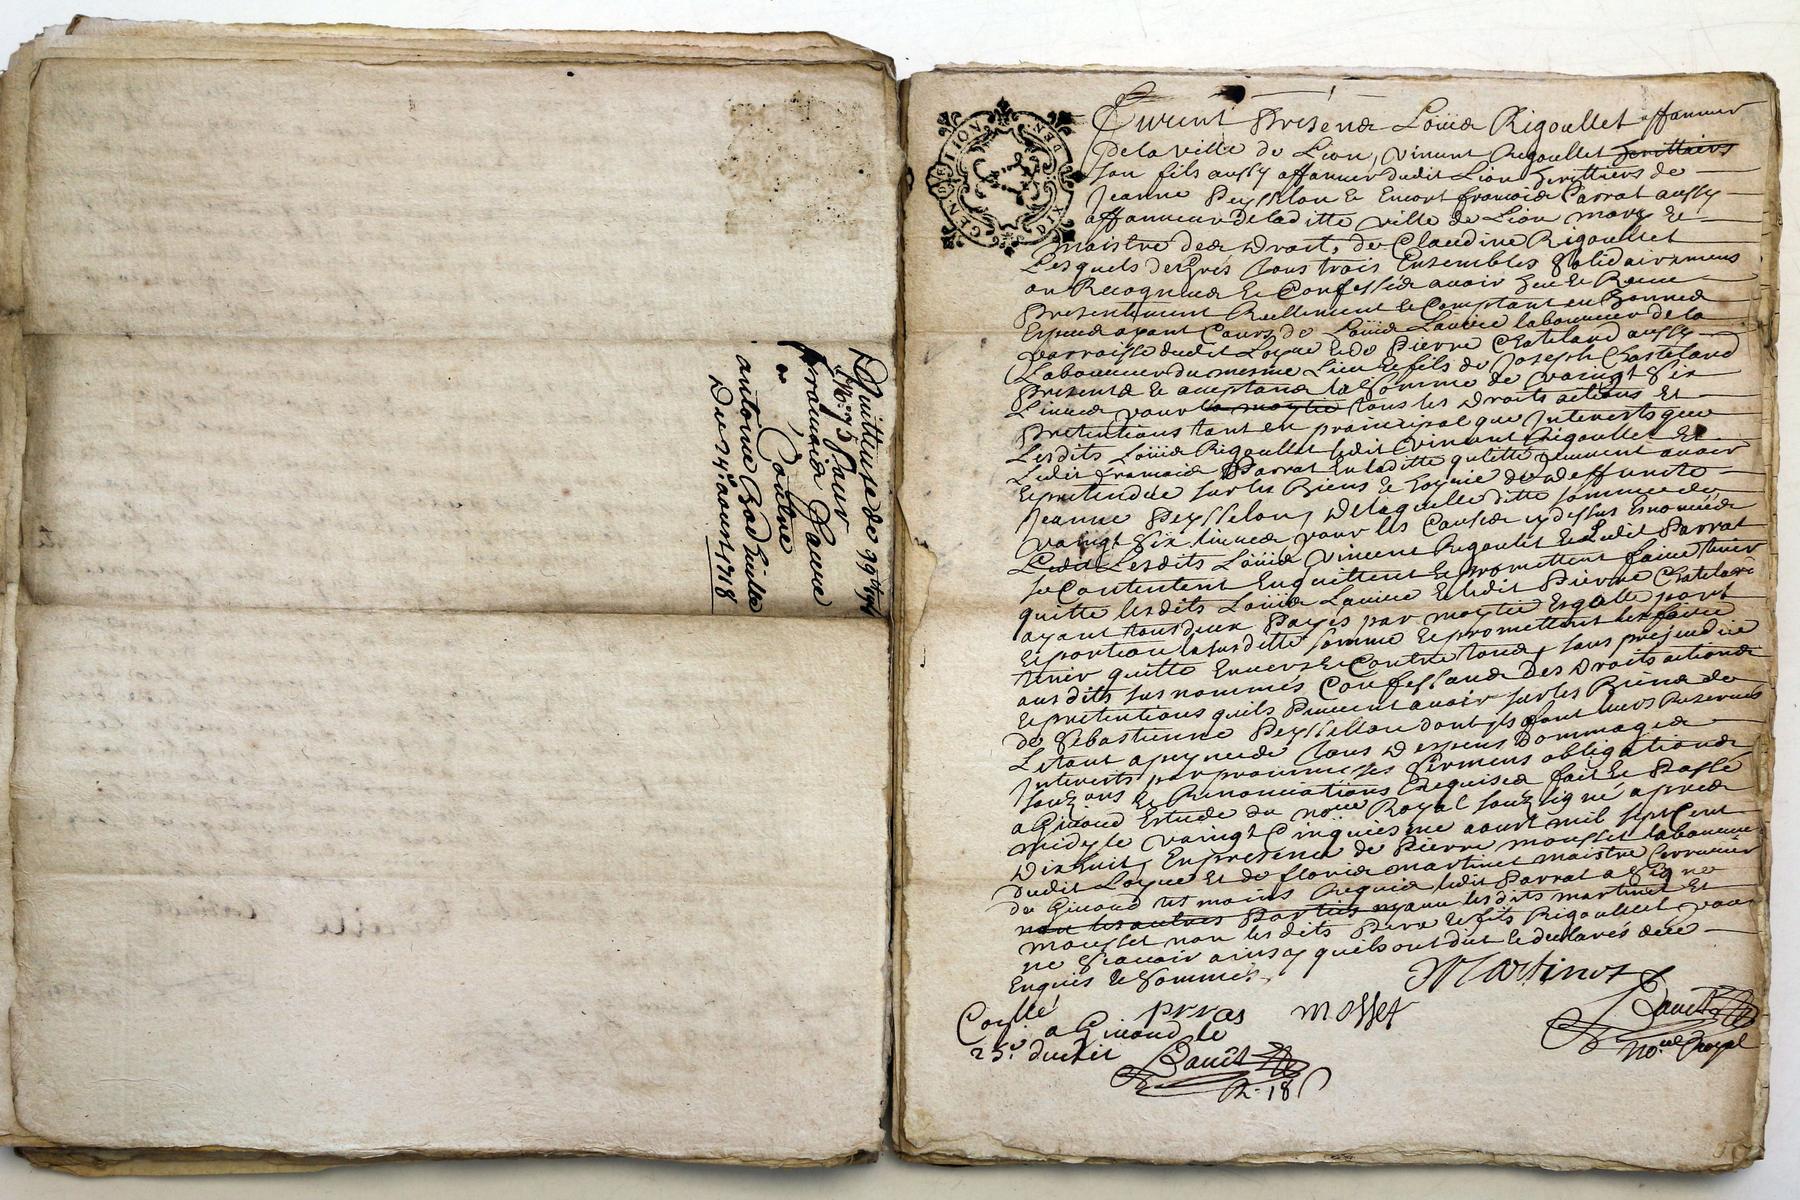 Quittance de 99 lt 17s
Pour
francois Favre
Contre
antoine
Du 24e aoust 1718
GEN DE LION
DEN
Furent Presens Loüis Rigoullet affanneur
de la ville de Lion, vincent Rigoullet heritiers
son fils aussy affanneur dudit Lion heritiers de
Jeanne Peysselon Et Encor francois Parrat aussy
affanneur de laditte ville de Lion mary Et
maistre des Droits de Claudine Rigoullet
Lesquels de Gré Tous trois Ensembles solidairement
on Recognus Et Confessés avoir heu Et Receu
Presentement Reellement Et Comptant en Bonnes
Especes ayant Cours de Loüis Laurier laboureur de la
Parroisse dudit Loyue Et de Pierre Chatelard aussy
Laboureur du mesme Lieu Et fils de Joseph Chatelard
Presents Et acceptants la somme de vaingt six
Livres pour la moytié tous les Droits actions Et
Pretentions tant en principal que Interests que
Lesdits Loüis Rigoullet ledit vincent Rigoullet Et
Ledit francois Parrat En laditte qualitté Peuvent avoir
Et pretendre sur les Biens Et hoyrie de deffuncte
Jeanne Peysselon, De laquelle ditte somme de
vaingt six livres pour les Causes cy dessus Enoncées
Ledit Lesdits Loüis vincent Rigoullet Et Ledit Parrat
se Contentent En quittent Et promettent faire tenir
quitte lesdits Loüis Laurier Et ledit Pierre Chatelard
ayant tous deux Payés par moytié Esgalle part
Et portion la susditte somme Et promettent les faire
tenir quitte Envers Et Contre tous, sans prejudice
aus dits sus nommés Confessants Des Droits actions
Et pretentions quils Peuvent avoir sur les Biens de
de Sebastienne Peyssellon dont ils font leurs Reserves
Le tout a peyne de Tous Despens dommages
Interests par promesses serments obligations
souz ons Et Renonciations Requises fait Et Passé
a Givord Estude du nore Royal souz signé apres
midy le vaingt Cinquiesme aoust mil sept Cent
Dix huit, En presence de Pierre mousset laboureur
dudit Loyue Et de floris martinet maistre serrurier
du Givord tesmoins Requis ledit Parrat a signé
non les autres Parties avec lesdits martinet Et
mousset non lesdits Pere Et fils Rigoullet pour
ne sçavoir ainsy quils ont dit Et declarés de ce
Enquis Et sommés.
Martinet
prras mosset
Conllé
a Givord le
25e dudit
R. 18s
Nore Royal